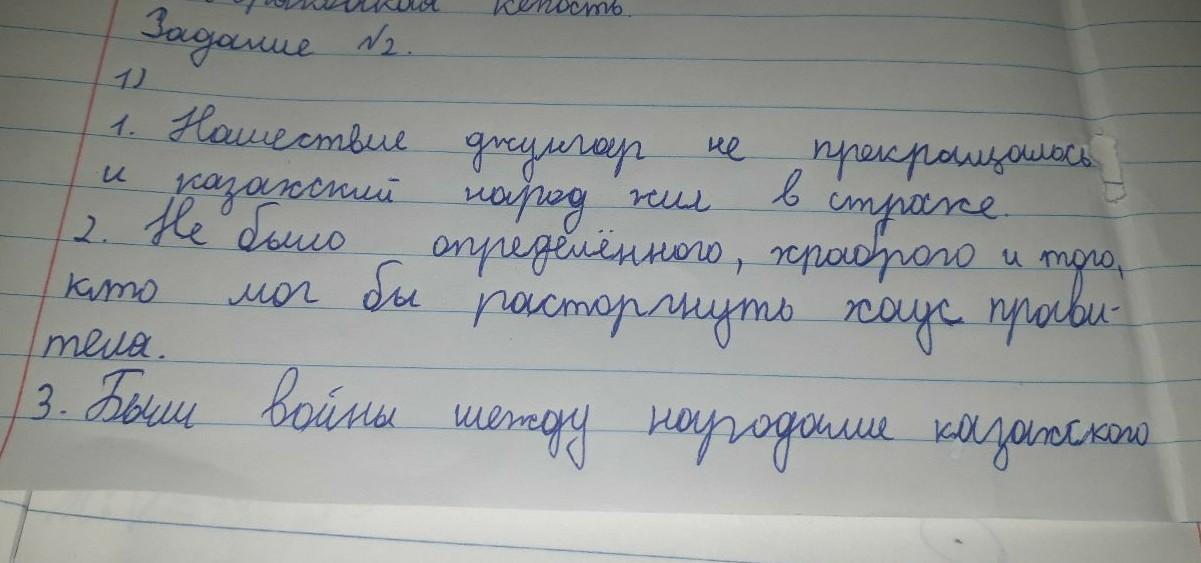 кепость.
Задание №2.
1)
1. Нашествие джунгар не прекращалось
и казахский народ жил в страхе.
2. Не было определённого, храброго и того,
кто мог бы расторгнуть хаус прави-
тела.
3. Были войны между народами казахского